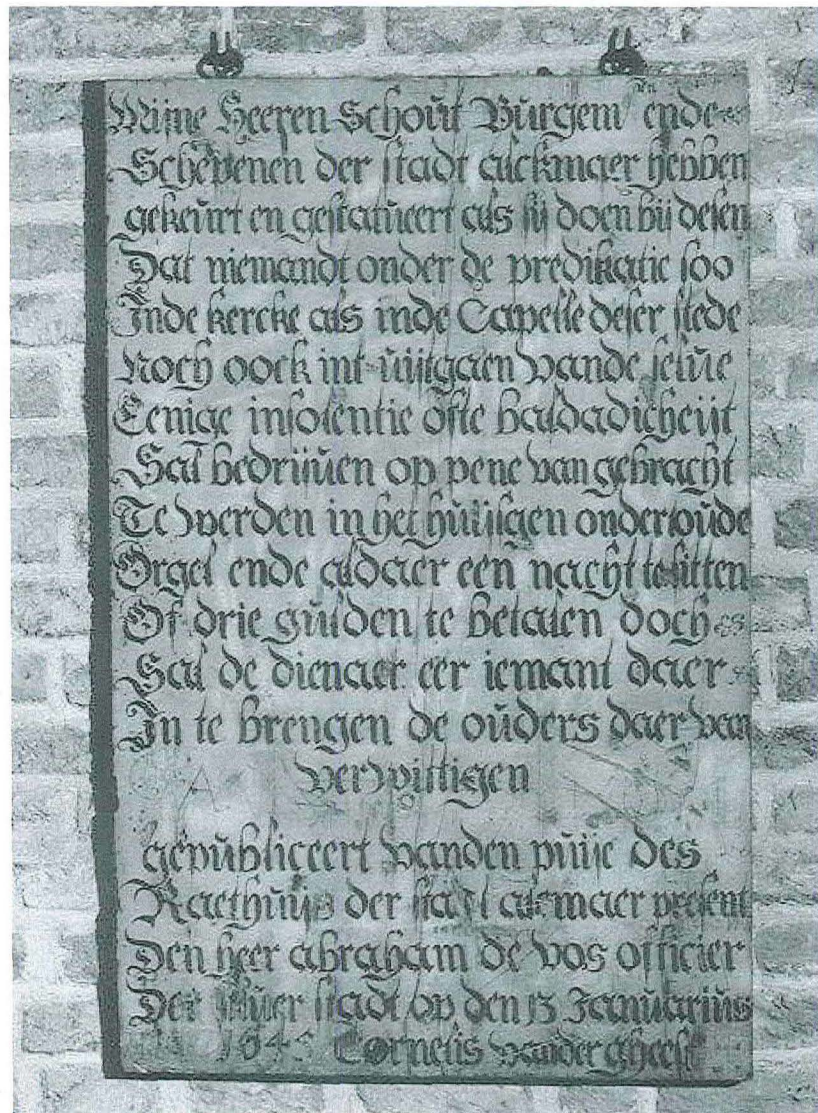 Mijne Heeren Schout Burgem^en ende
Schepenen der stadt alckmaer hebben
gekeurt en gestatueert als sij doen bij desen
Dat niemandt onder de predikatie soo
Inde kercke als inde Capelle deser stede
Noch oock int uijtgaen vande selve
Eenige insolentie ofte baldadicheijt
Sal bedrijven op pene van gebracht
Te werden in het huijsgen onder t oude
Orgel ende aldaer een nacht te sitten
Of drie gulden te betalen doch
Sal de dienaer eer iemant daer
In te brengen de ouders daer van
verwittigen
gepubliceert vanden puije des
Raethuijs der stadt alcmaer present
Den heer abraham de vos officier
Der stadt op den 13 Januarius
164 Cornelis vander gheest